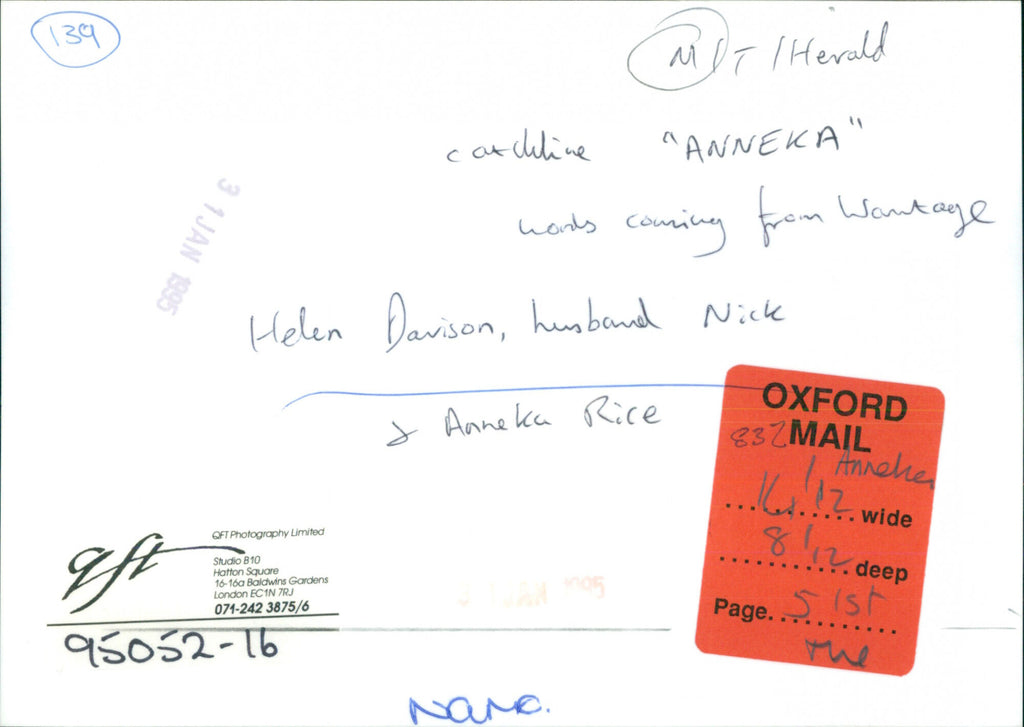 139
M/T/Herald
catchline "ANNEKA"
words coming from Wantage
31 JAN 1995
Helen Davison, husband Nick
& Anneka Rice
OXFORD
MAIL
832
Anneka
wide
8/12 deep
Page 5 1st
The
qft
QFT Photography Limited
Studio B10
Hatton Square
16-16a Baldwins Gardens
London EC1N 7RJ
071-242 3875/6
1995
95052-16